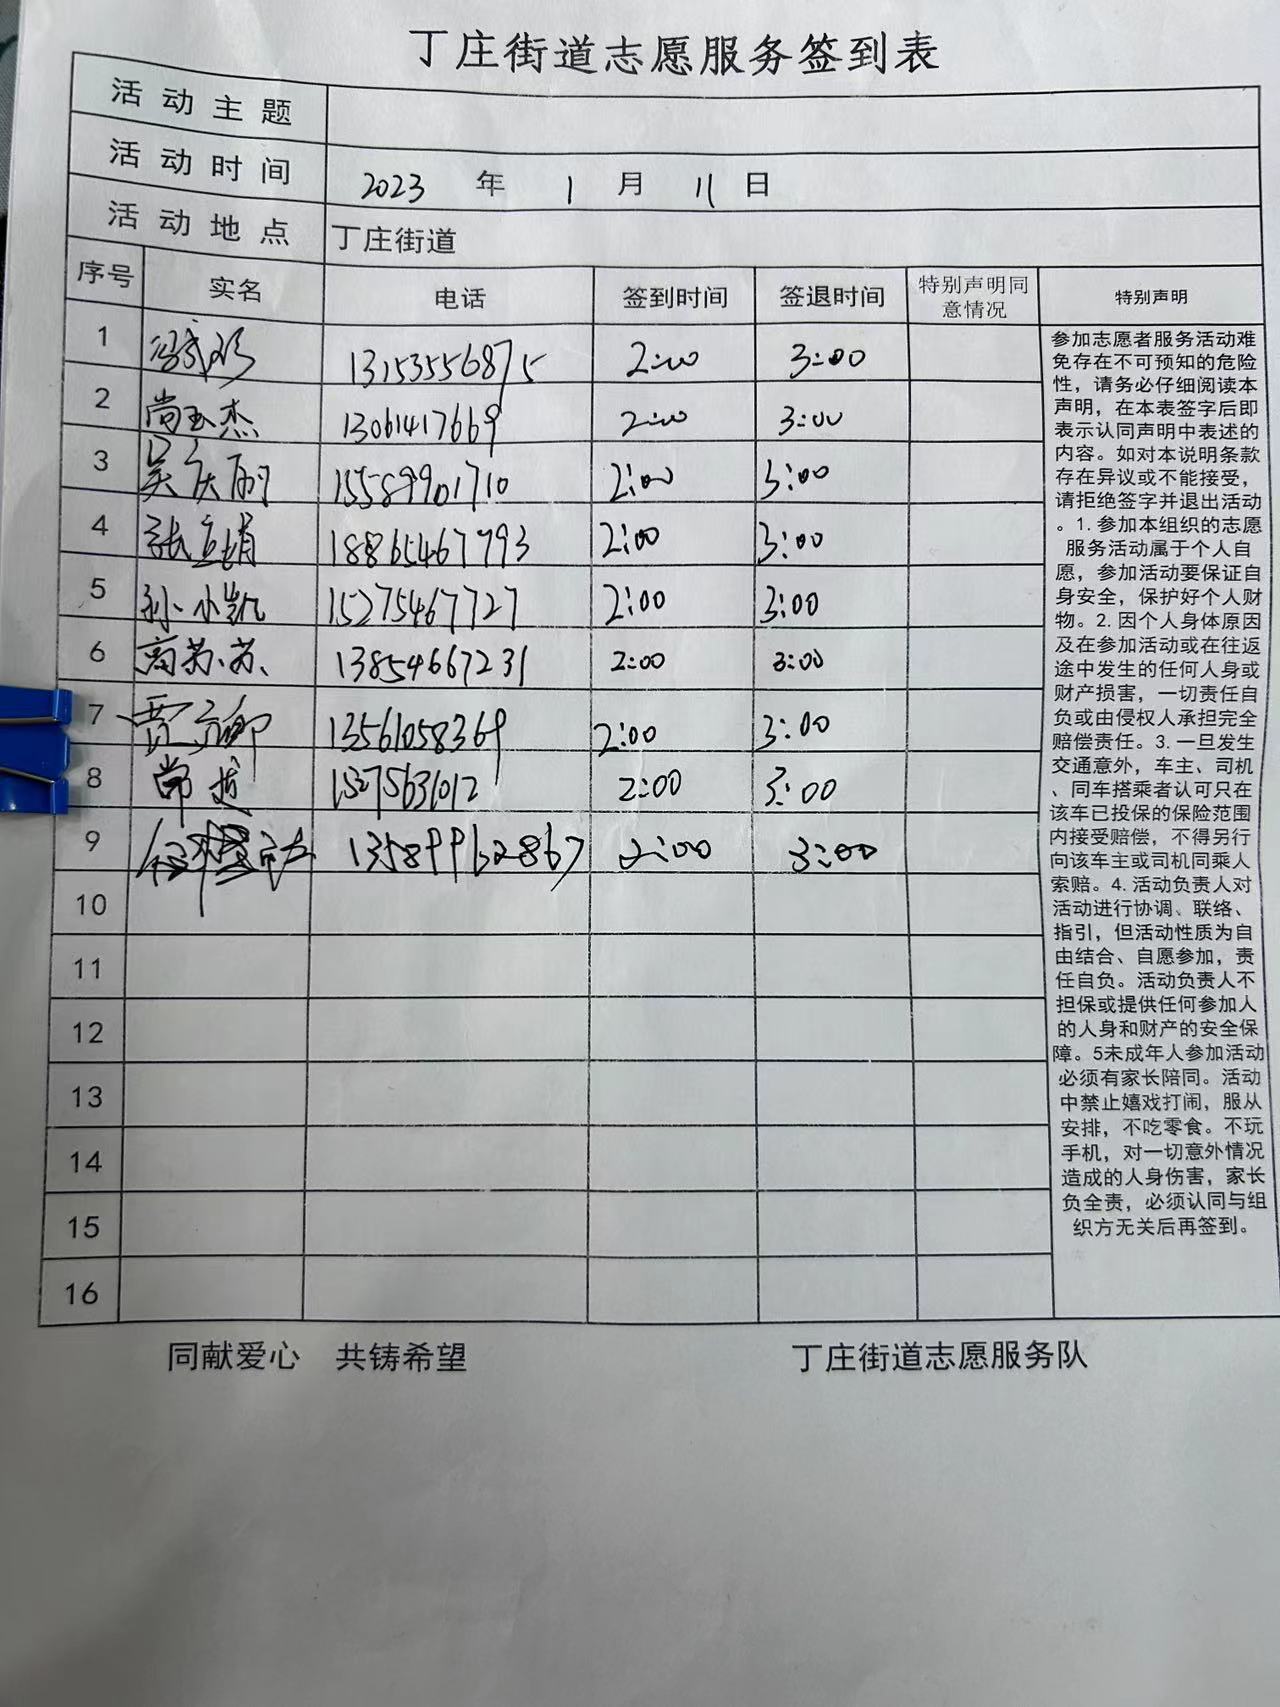 丁庄街道志愿服务签到表
活动主题
活动时间 2023 年 1 月 11 日
活动地点 丁庄街道
序号 实名 电话 签到时间 签退时间 特别声明同意情况 特别声明
1 13153556875 2:00 3:00
2 尚玉杰 13061417669 2:00 3:00
3 吴庆丽 15589901710 2:00 3:00
4 张立娟 18865467793 2:00 3:00
5 孙小凯 15275467727 2:00 3:00
6 商苏苏 13854667231 2:00 3:00
7 贾 13561058369 2:00 3:00
8 常 15275631012 2:00 3:00
9 13589962867 2:00 3:00
10
11
12
13
14
15
16
参加志愿者服务活动难
免存在不可预知的危险
性，请务必仔细阅读本
声明，在本表签字后即
表示认同声明中表述的
内容。如对本说明条款
存在异议或不能接受，
请拒绝签字并退出活动
。1. 参加本组织的志愿
服务活动属于个人自
愿，参加活动要保证自
身安全，保护好个人财
物。2. 因个人身体原因
及在参加活动或在往返
途中发生的任何人身或
财产损害，一切责任自
负或由侵权人承担完全
赔偿责任。3. 一旦发生
交通意外，车主、司机
、同车搭乘者认可只在
该车已投保的保险范围
内接受赔偿，不得另行
向该车主或司机同乘人
索赔。4. 活动负责人对
活动进行协调、联络、
指引，但活动性质为自
由结合、自愿参加，责
任自负。活动负责人不
担保或提供任何参加人
的人身和财产的安全保
障。5未成年人参加活动
必须有家长陪同。活动
中禁止嬉戏打闹，服从
安排，不吃零食。不玩
手机，对一切意外情况
造成的人身伤害，家长
负全责，必须认同与组
织方无关后再签到。
同献爱心 共铸希望 丁庄街道志愿服务队